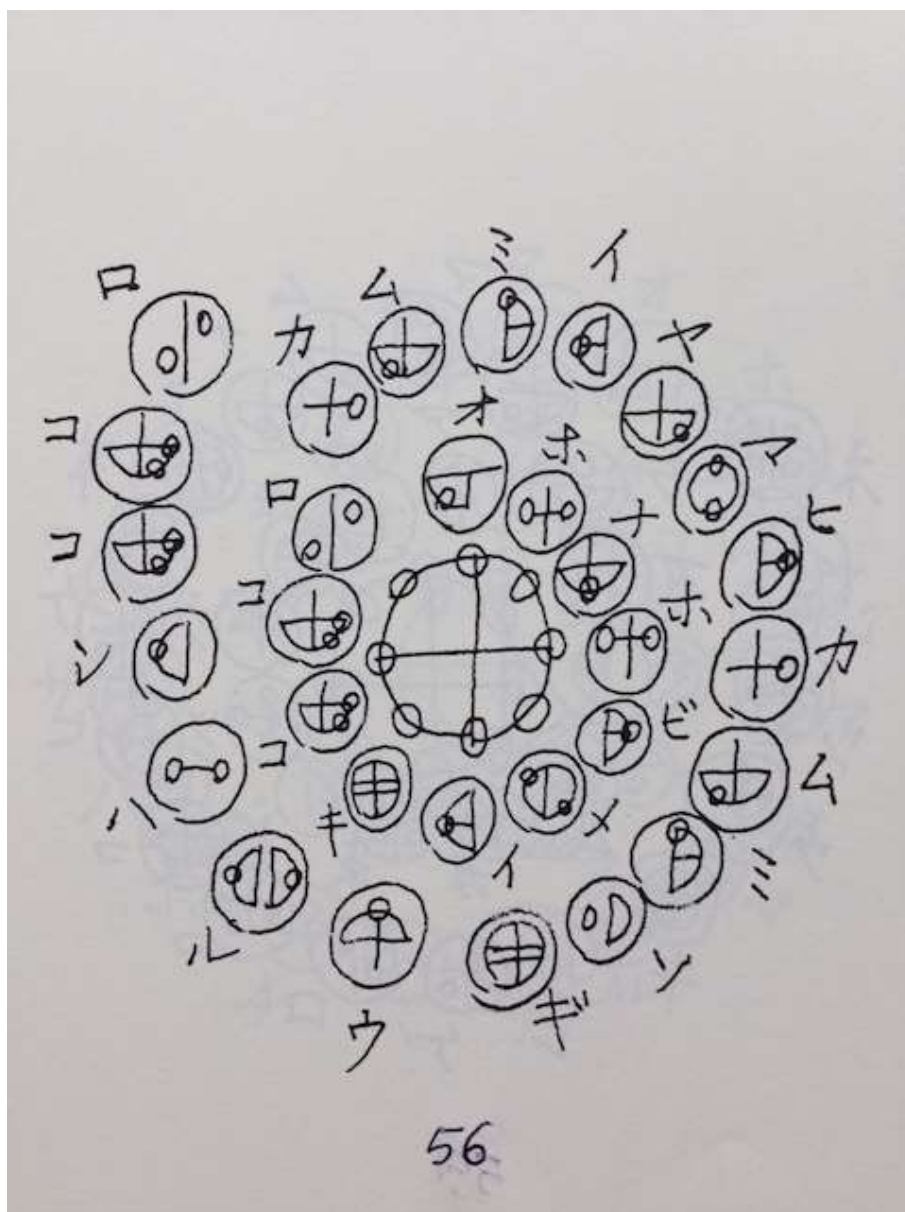 オホナホビメイキココロカムミイヤマヒカムミソギウルハシココロ
56